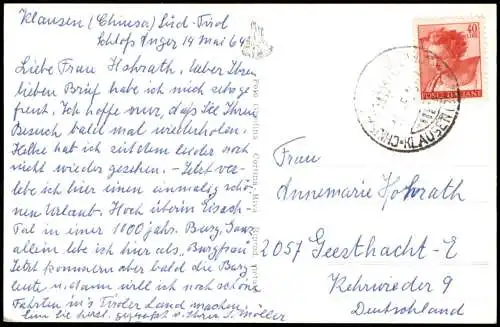 Klausen (Chiusa) Süd-Tirol
Schloß Anger 14 Mai 64
Liebe Frau Hohrath, über Ihren
lieben Brief habe ich mich sehr ge-
freut. Ich hoffe nur, daß Sie Ihren
Besuch bald mal wiederholen.
habe ich seitdem leider noch
nicht wieder gesehen. - Jetzt ver-
lebe ich hier einen einmalig schö-
nen Urlaub. Hoch überm Eisack-
Tal in einer 1100 jahr. Burg. Ganz
allein lebe ich hier als „Burgfrau"
Jetzt kommen aber bald die Burg-
leute u. dann will ich noch schöne
Fahrten in's Tiroler Land machen
Sie herzl. gegrüßt v. Ihrer S. Möller
40
LIRE
POSTE ITALIANE
KLAUSEN
Frau
Annemarie Hohrath
2057 Geesthacht-E
Kehrwieder 9
Deutschland